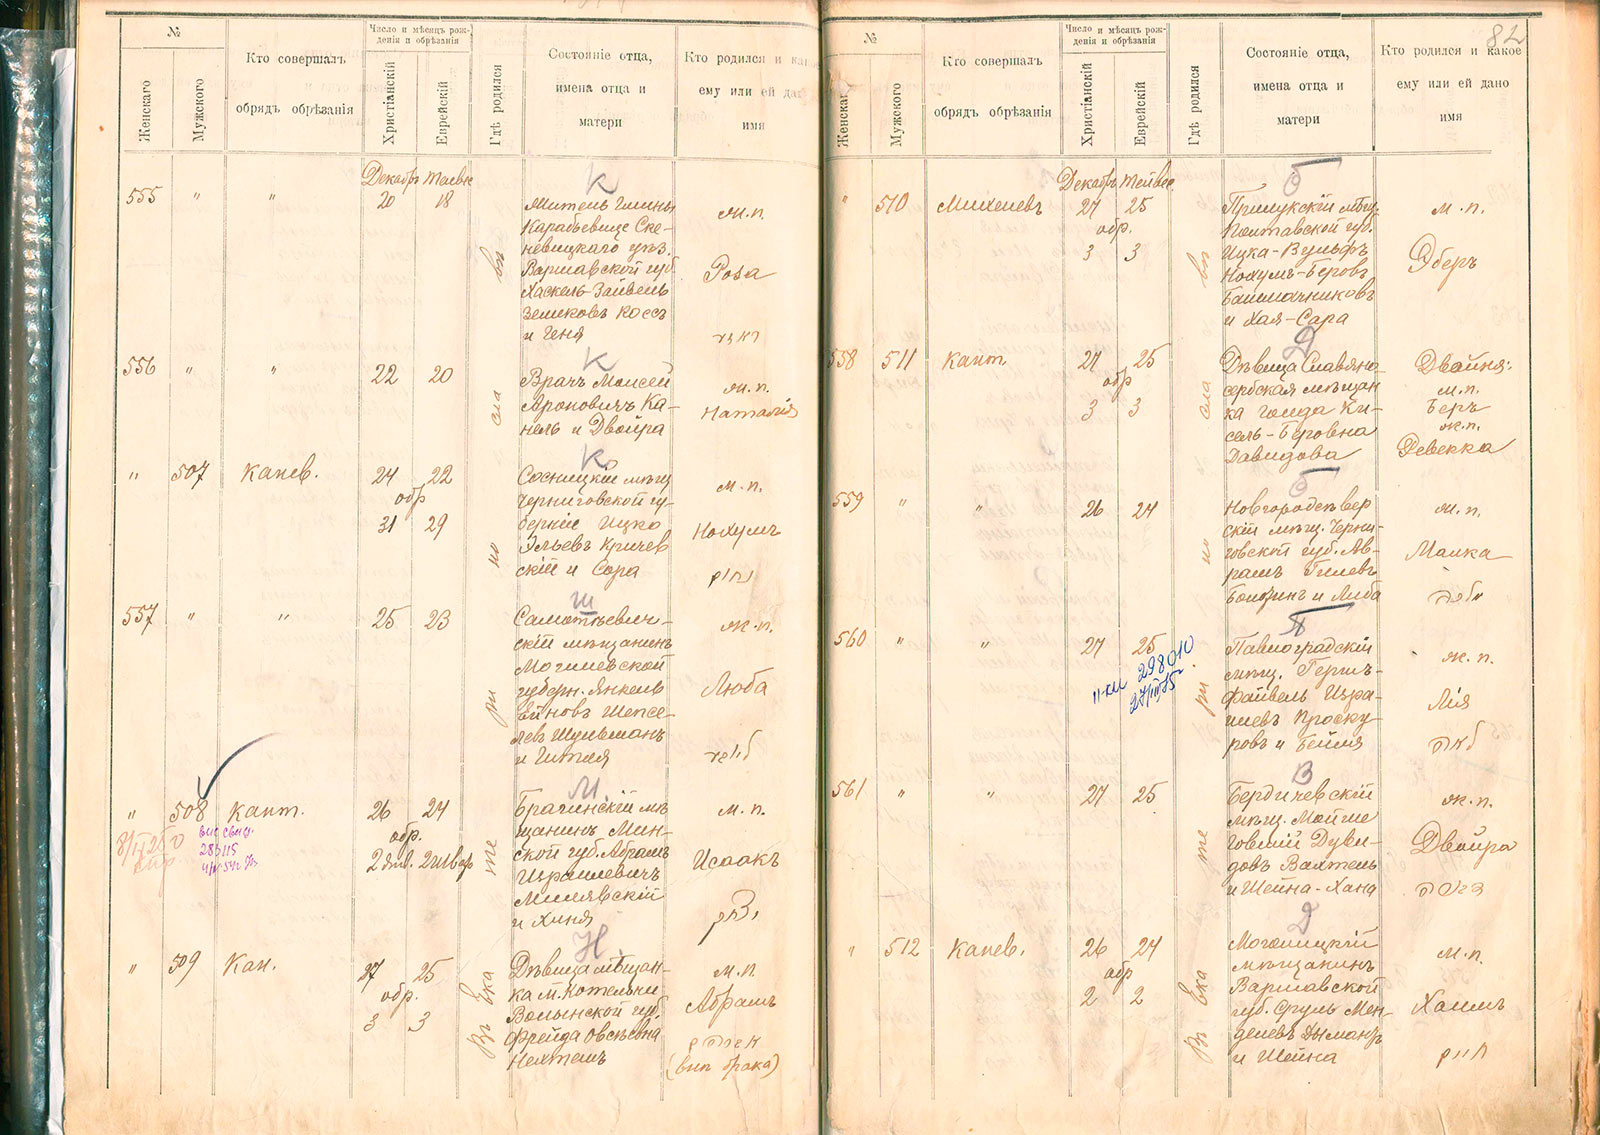 82
№
Женскаго
Мужского
Кто совершалъ
обрядъ обрѣзанія
Число и мѣсяцъ рож-
денія и обрѣзанія
Христіанскій
Еврейскій
Гдѣ родился
Состояніе отца,
имена отца и
матери
Кто родился и как
ему или ей да
имя
Декабрь Тейвес
555 " " 20 18
К
Житель гмины
Карабьевице Ске-
невицкаго уѣз.
Варшавской губ.
Хаскель-Зайвель
Зеликовъ Коссъ
и Геня
ж.п.
Роза
556 " " 22 20
К
Врачъ Моисей
Ароновичъ Ка-
нель и Двойра
ж.п.
Наталія
" 507 Канев. 24 22
обр
31 29
К
Сосницкій мѣщ
Черниговской гу-
берніи Ицко
Эльевъ Кричев
скій и Сора
м.п.
Нохумъ
557 " " 25 23
Ш
скій мѣщанинъ
Могилевской
губерн. Янкель
Шепсе-
левъ Шульманъ
и Гитля
ж.п.
Люба
" 508 Кант. 26 24
обр.
2 янв. 2 шва
М.
Брагинскій мѣ
щанинъ Мин-
ской губ. Абрамъ
Израилевичъ
Милявскій
и Хиня
м.п.
Исаакъ
" 509 Кан. 27 25
обр.
3 3
Н.
Дѣвица мѣщан-
ка м. Котельни
Волынской губ.
Фрейда Овсѣевна
Нехтемъ
м.п.
Абрамъ
(внѣ брака)
Въ Ека те ри но сла вѣ
№
Женскаг
Мужского
Кто совершалъ
обрядъ обрѣзанія
Число и мѣсяцъ рож-
денія и обрѣзанія
Христіанскій
Еврейскій
Гдѣ родился
Состояніе отца,
имена отца и
матери
Кто родился и какое
ему или ей дано
имя
Декабрь Тейвес
" 510 Михелевъ 27 25
обр.
3 3
Б
Прилукскій мѣщ.
Полтавской губ.
Ицка-Вульфъ
Нохумъ-Беровъ
Башмачниковъ
и Хая-Сара
м.п.
Эберъ
558 511 Кант. 27 25
обр
3 3
Д
Дѣвица Славяно-
сербская мѣщан
ка Голда Ки-
сель-Беровна
Давидова
Двойня:
м.п.
Беръ
ж.п.
Ревекка
559 " " 26 24
Б
Новгородсѣвер
скій мѣщ. Черни-
говской губ. Ав-
рамъ Гилевъ
и Либа
ж.п.
Малка
560 " " 27 25
298010
П
Павлоградскій
мѣщ. Гершъ-
Файвель Изра-
илевъ Проску-
ровъ и Бейля
ж.п.
Лія
561 " " 27 25
В
Бердичевскій
мѣщ. Мойше
Говшій Дуви-
довъ Вахтель
и Шейна-Хана
ж.п.
Двойра
" 512 Канев. 26 24
обр
2 2
Д
Могелницкій
мѣщанинъ
Варшавской
губ. Сруль Мен-
делевъ Дыманръ
и Шейна
м.п.
Хаимъ
Въ Ека те ри но сла вѣ